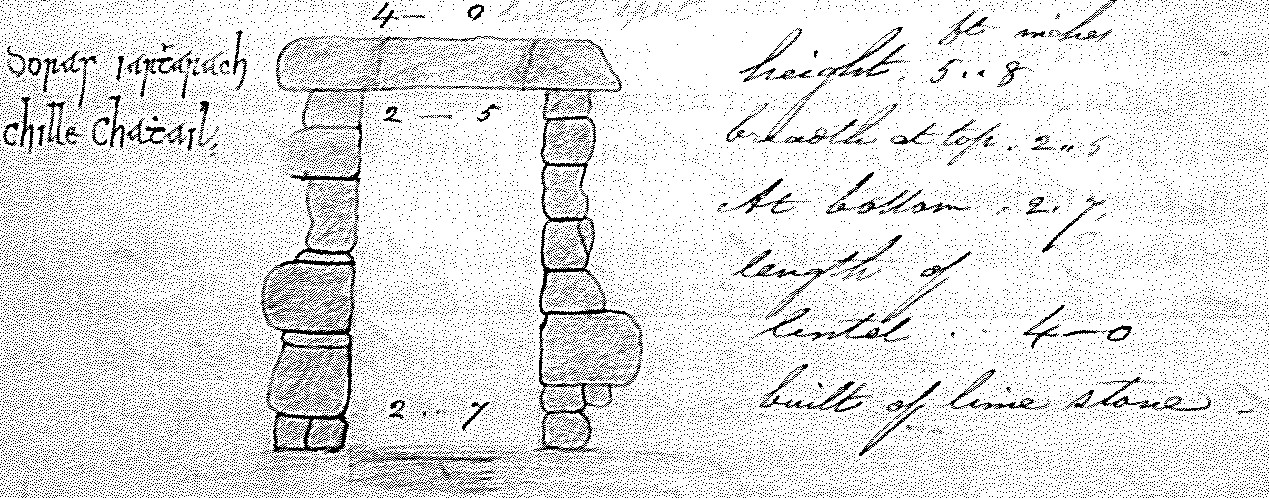 4— 0
Doras iarṫarach
chille Chaṫail,
2 — 5
2 .. 7
ft inches
height . 5 .. 8
breadth at top . 2 .. 5
At bottom . 2 . 7,
length of
lintel . 4—0
built of lime stone -